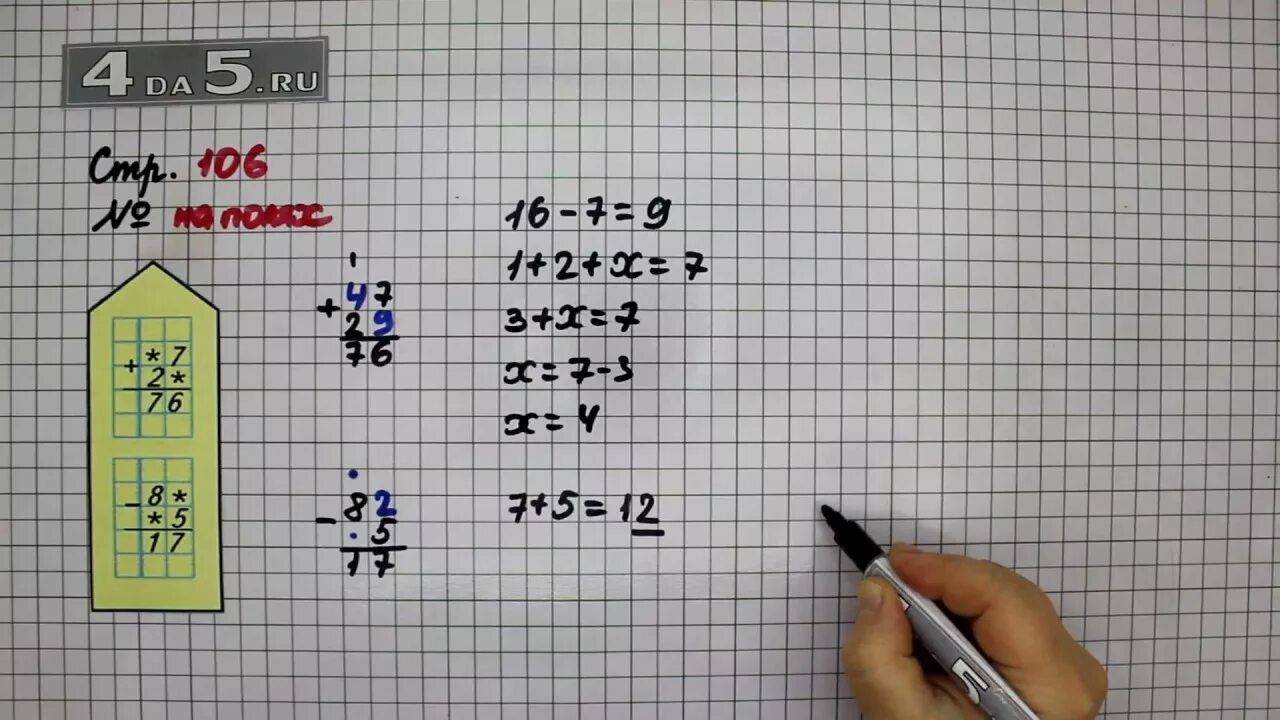 4DA5.RU
Стр. 106
№ на полях
+ *7
2*
76
- 8*
*5
17
1
+ 47
29
76
- 82
. 5
17
16 - 7 = 9
1 + 2 + x = 7
3 + x = 7
x = 7 - 3
x = 4
7 + 5 = 12